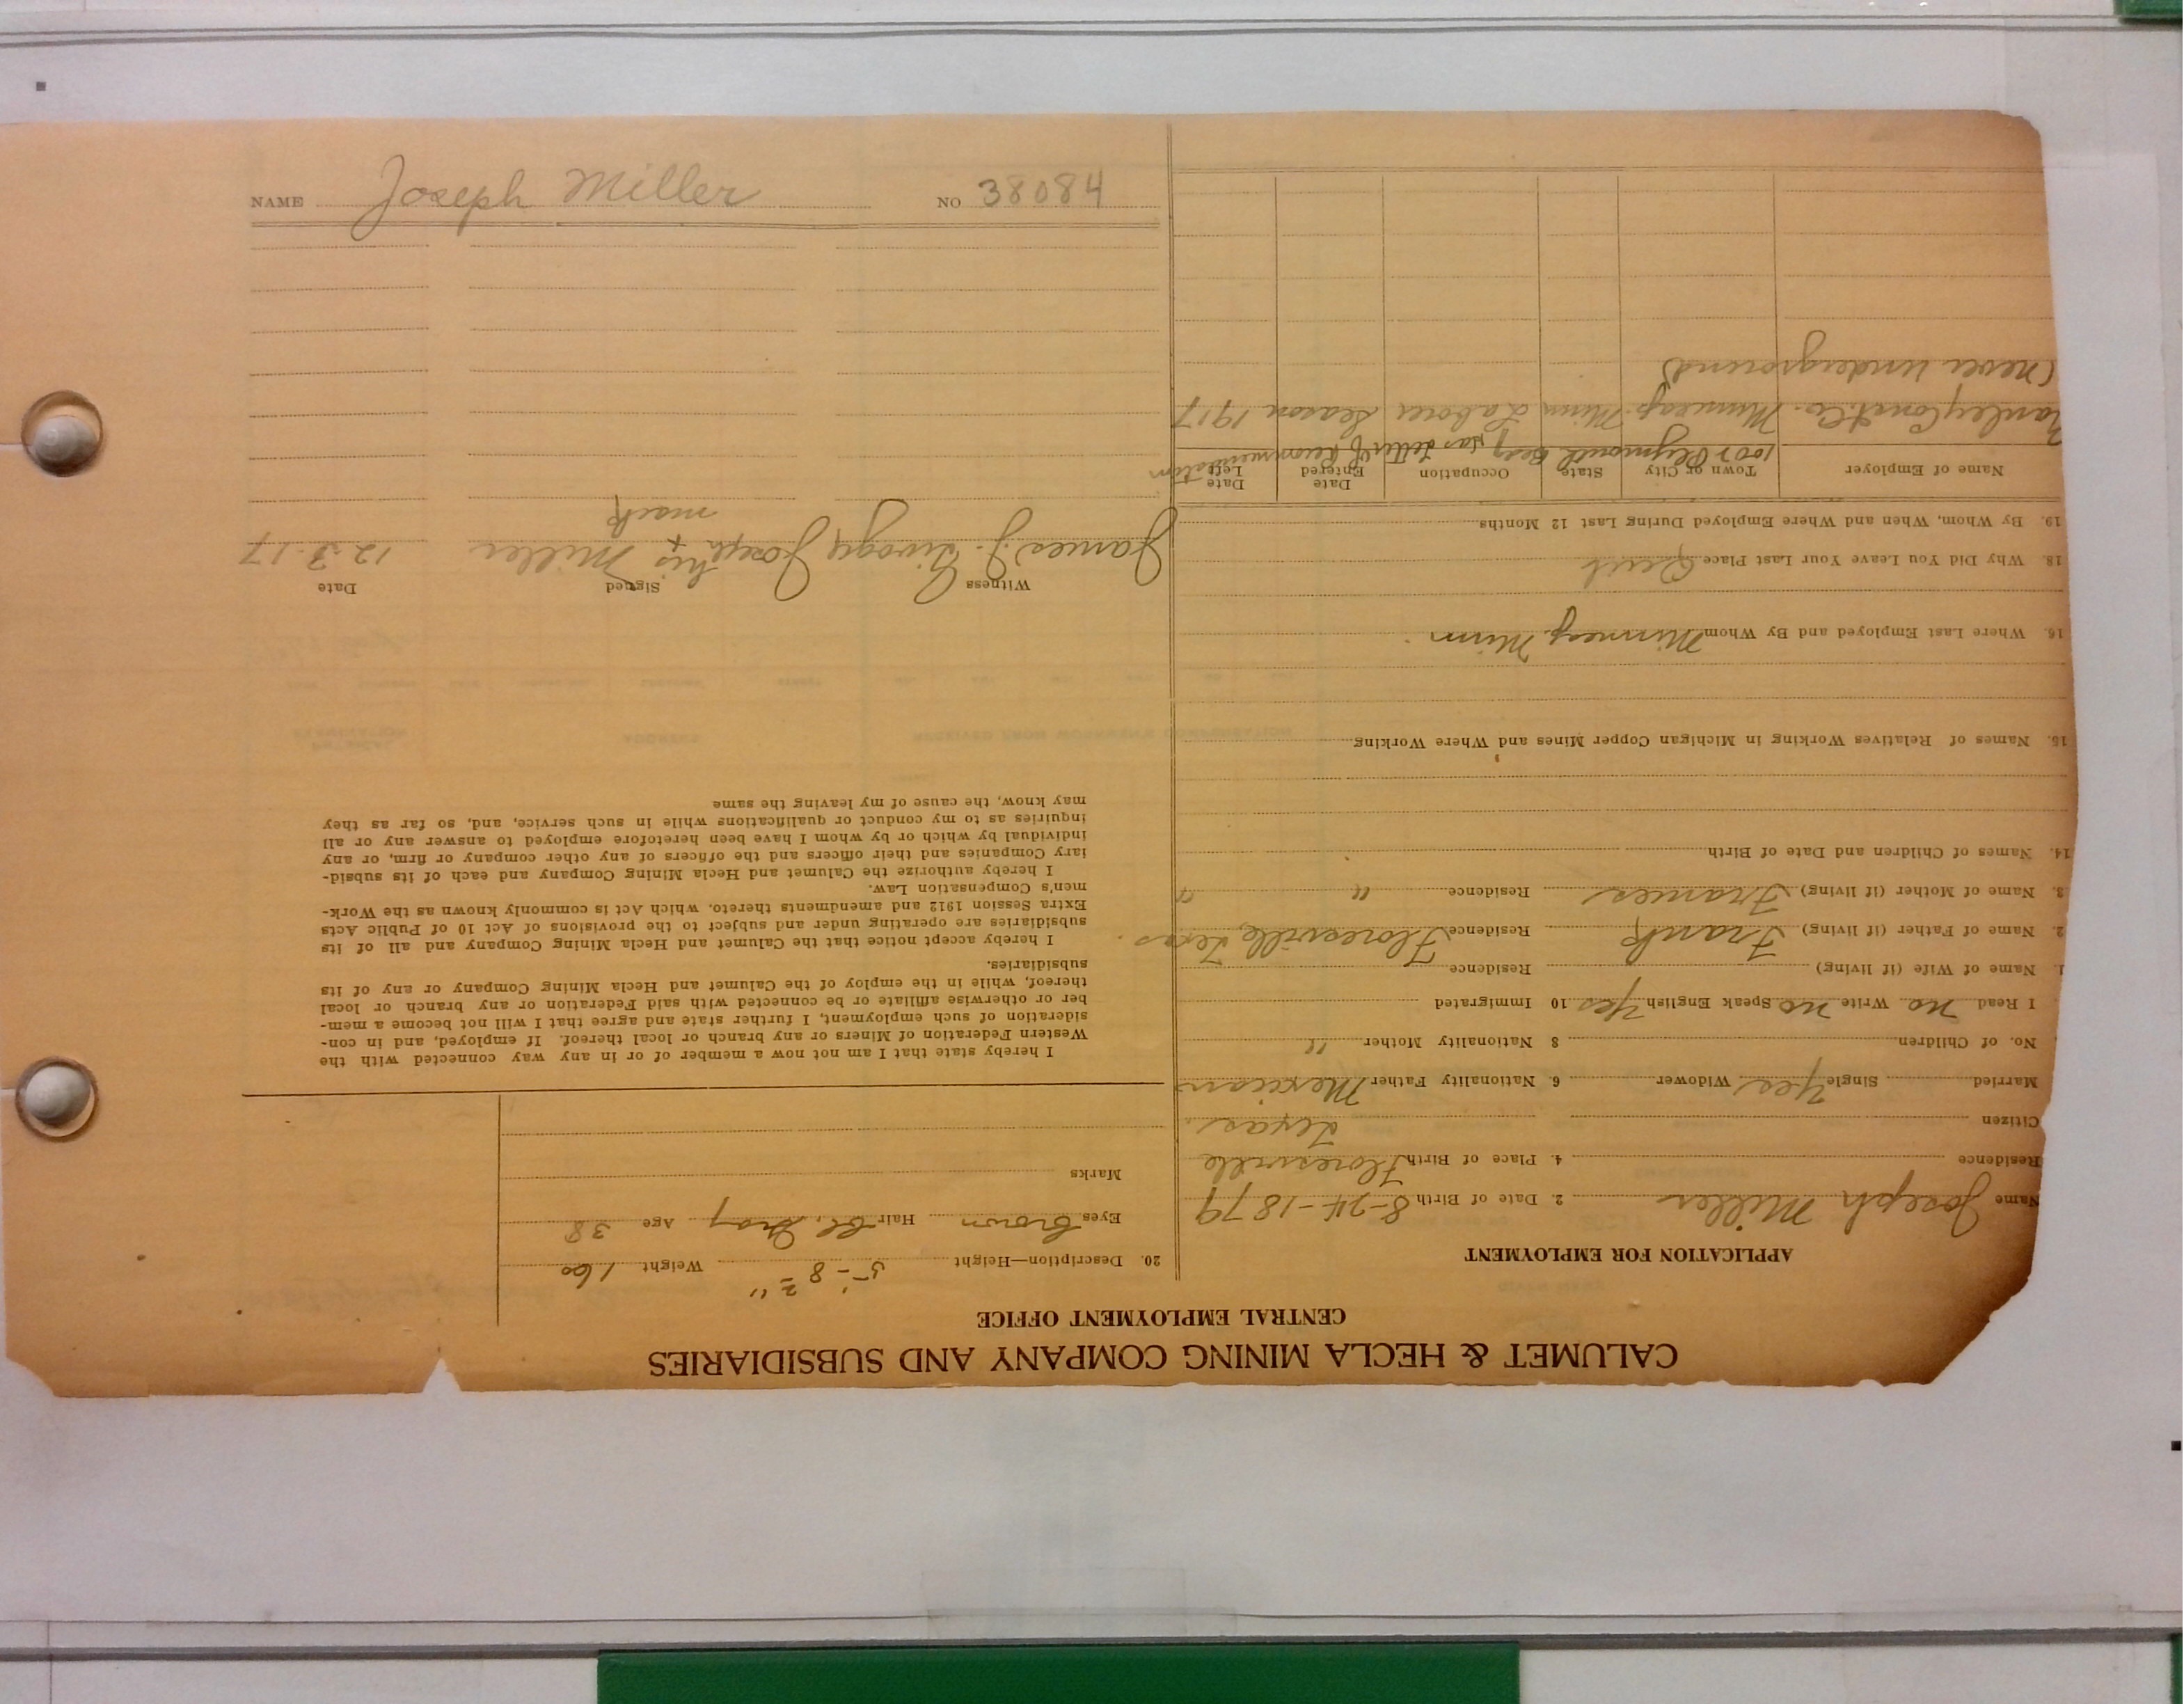 CALUMET & HECLA MINING COMPANY AND SUBSIDIARIES
CENTRAL EMPLOYMENT OFFICE
APPLICATION FOR EMPLOYMENT
Name Joseph Miller 2. Date of Birth 8-24-1879
Residence 4. Place of Birth Floresville
Texas
Citizen
Married Single Yes Widower 6. Nationality Father Mexican
No. of Children 8 Nationality Mother "
I Read no Write no Speak English Yes 10 Immigrated
1. Name of Wife (if living) Residence
2. Name of Father (if living) Frank Residence Floresville, Texas.
3. Name of Mother (if living) Frances Residence " "
14. Names of Children and Date of Birth
15. Names of Relatives Working in Michigan Copper Mines and Where Working
16. Where Last Employed and By Whom Minneap. Minn
18. Why Did You Leave Your Last Place Quit
19. By Whom, When and Where Employed During Last 12 Months
Name of Employer Town or City State Occupation Date Entered Date Left
1007 Plymouth has Letter of Recommendation
Const. Co. Minneap. Minn Laborer Season 1917
(never underground)
20. Description—Height 5'-8 1/2" Weight 160
Eyes Brown Hair Bl. Gray Age 38
Marks
I hereby state that I am not now a member of or in any way connected with the
Western Federation of Miners or any branch or local thereof. If employed, and in con-
sideration of such employment, I further state and agree that I will not become a mem-
ber or otherwise affiliate or be connected with said Federation or any branch or local
thereof, while in the employ of the Calumet and Hecla Mining Company or any of its
subsidiaries.
I hereby accept notice that the Calumet and Hecla Mining Company and all of its
subsidiaries are operating under and subject to the provisions of Act 10 of Public Acts
Extra Session 1912 and amendments thereto. which Act is commonly known as the Work-
men's Compensation Law.
I hereby authorize the Calumet and Hecla Mining Company and each of its subsid-
iary Companies and their officers and the officers of any other company or firm, or any
individual by which or by whom I have been heretofore employed to answer any or all
inquiries as to my conduct or qualifications while in such service, and, so far as they
may know, the cause of my leaving the same
Witness Signed Date
James J. Joseph his x Miller 12-3-17
mark
NAME Joseph Miller NO 38084